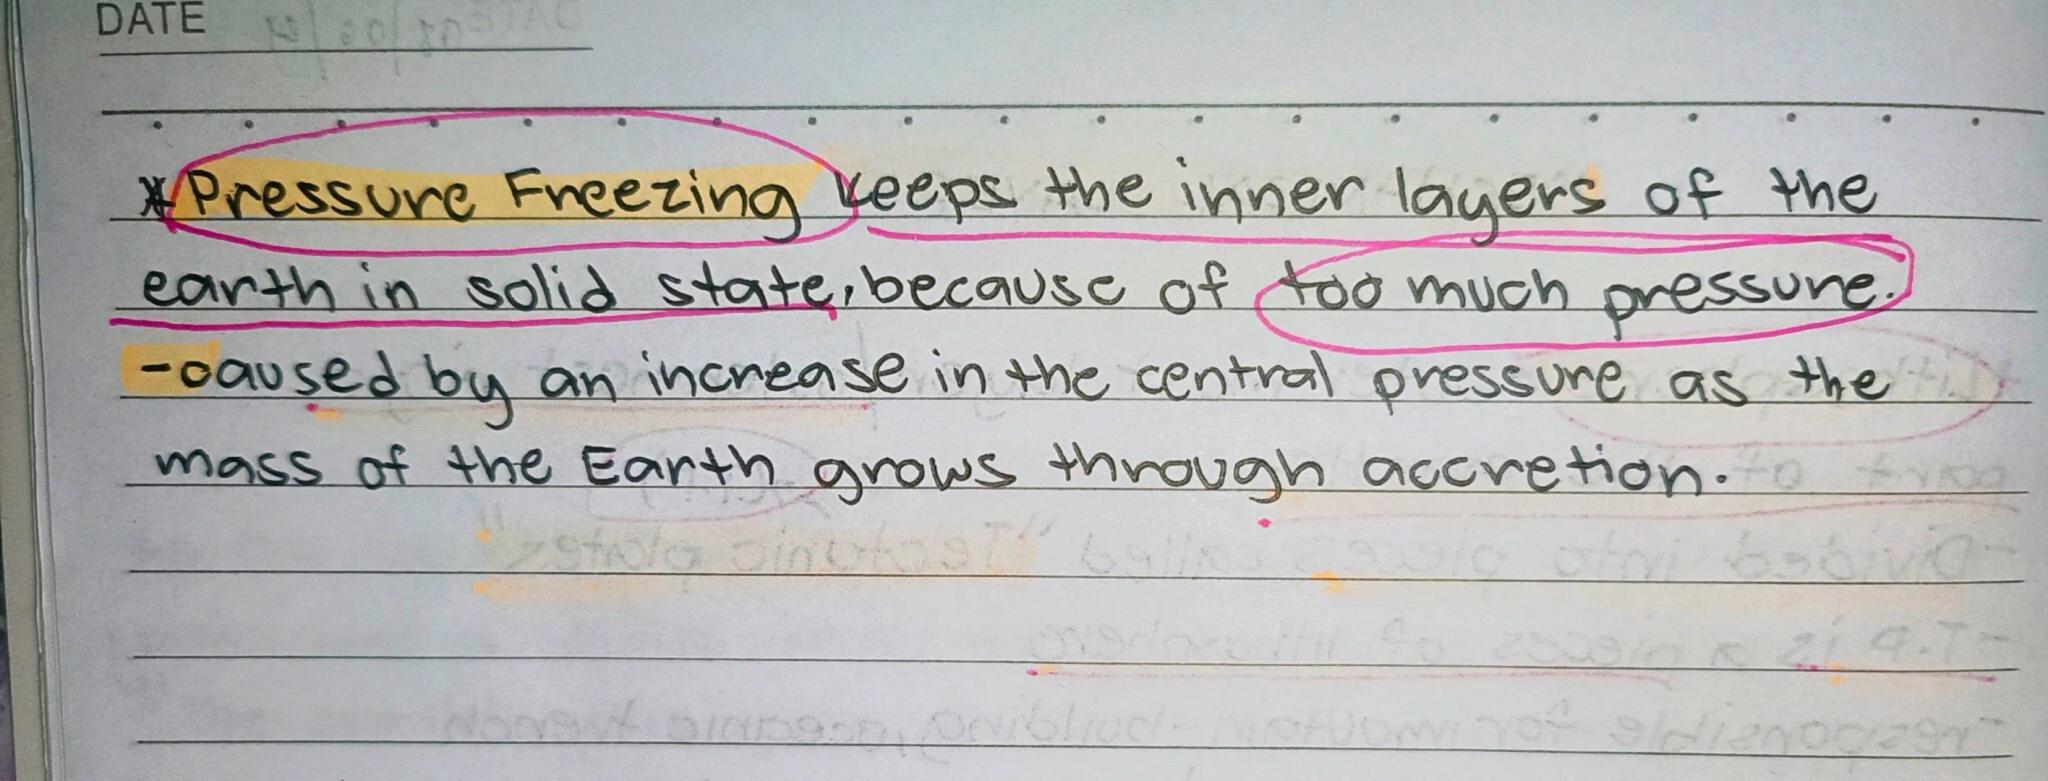 DATE
*Pressure Freezing keeps the inner layers of the
earth in solid state, because of too much pressure.
-caused by an increase in the central pressure as the
mass of the Earth grows through accretion.